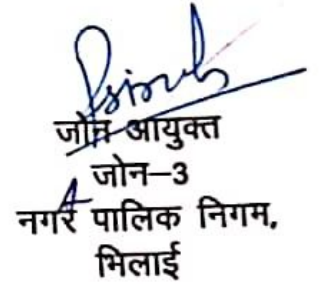 जोन आयुक्त
जोन–3
नगर पालिक निगम,
भिलाई